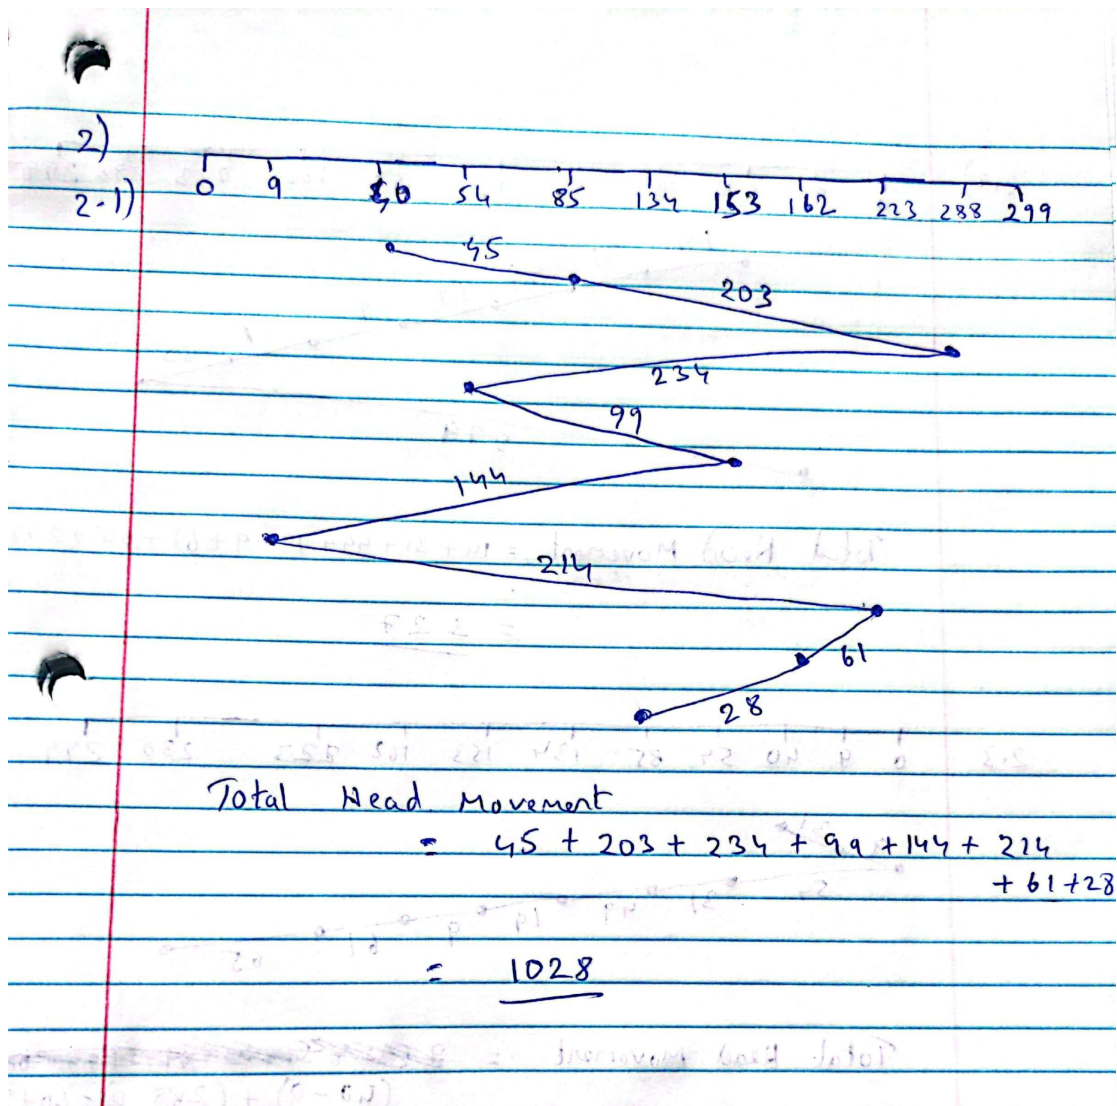 2)
2.1)
0 9 40 54 85 134 153 162 223 288 299
45
203
234
99
144
214
61
28
Total Head Movement
= 45 + 203 + 234 + 99 + 144 + 214
+ 61 + 28
= 1028